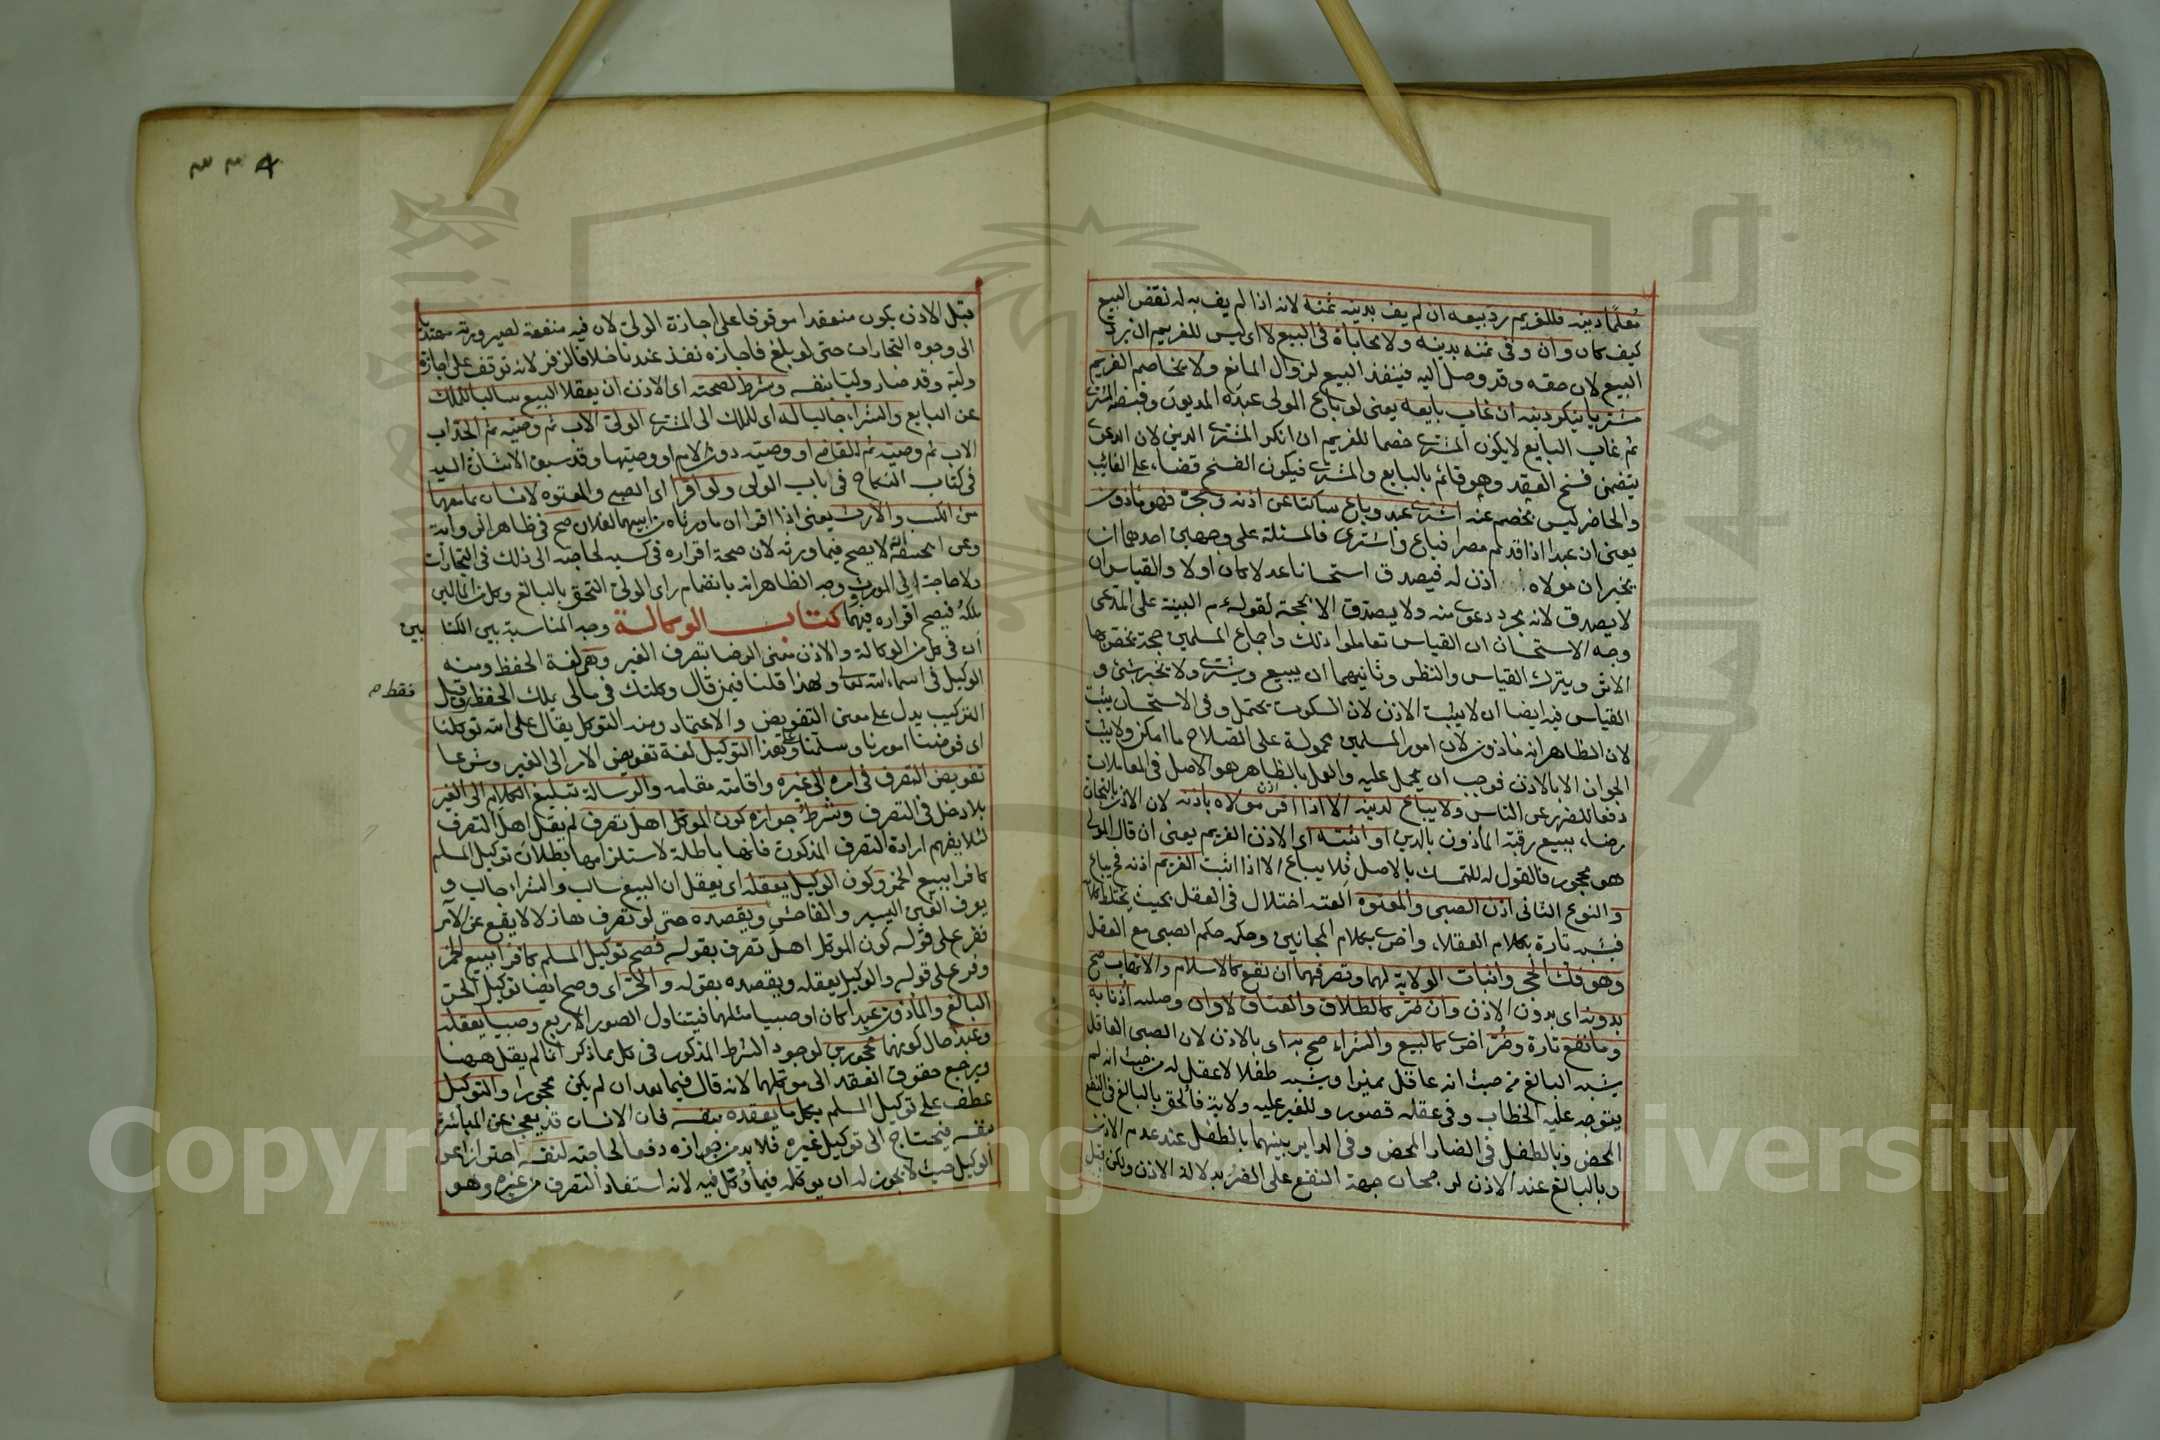 معلما دينه فللغريم رد بيعه ان لم يف بدينه ثمنه لانه اذا لم يف به له نقض البيع
كيف كان وان وفى ثمنه بدينه ولا محاباة في البيع لا اي ليس للغريم ان يرد
البيع لان حقه وقد وصل اليه فينفذ البيع لزوال المانع ولا يخاصم الغريم
مشتريا ينكر دينه ان غاب بايعه يعني لو باع المولى عبده المديون وقبضه المشتري
ثم غاب البايع لا يكون المشتري خصما للغريم ان انكر المشتري الدين لان الدعوى
يتضمن فسخ العقد وهو قائم بالبايع والمشتري فيكون الفسخ قضاء على الغائب
والحاضر ليس بخصم عنه اشترى عبد وباع ساكتا عن اذنه وحجره فهو ماذون
يعني ان عبدا اذا قدم مصرا فباع واشترى فالمسئلة على وجهين احدهما ان
يخبر ان مولاه اذن له فيصدق استحسانا عدلا كان اولا والقياس ان
لا يصدق لانه مجرد دعوى منه ولا يصدق الا بحجة لقوله عم البينة على المدعي
وجه الاستحسان ان القياس تعاملوا ذلك واجماع المسلمين حجة يخص بها
الاثر ويترك القياس والنظر وثانيهما ان يبيع ويشتري ولا يخبر بشئ و
القياس فيه ايضا ان لا يثبت الاذن لان السكوت يحتمل وفي الاستحسان يثبت
لان الظاهر انه ماذون لان امور المسلمين محمولة على الصلاح ما امكن ولا يثبت
الجواز الا بالاذن فوجب ان يحمل عليه والعمل بالظاهر هو الاصل في المعاملات
دفعا للضرر عن الناس ولا يباع لدينه الا اذا اقر مولاه باذنه لان الاذن بالتجارة
رضاء ببيع رقبة المأذون بالدين او اثبته اي الاذن الغريم يعني ان قال المولى
هو محجور فالقول له للتمسك بالاصل فلا يباع الا اذا اثبت الغريم اذنه فح يباع
والنوع الثاني اذن الصبي والمعتوه العته اختلال في العقل بحيث يختلط كلامه
فيشبه تارة بكلام العقلاء واخرى بكلام المجانين وحكمه حكم الصبي مع العقل
وهو فك الحجر واثبات الولاية لهما وتصرفهما ان نفع كالاسلام والاتهاب صح
بدونه اي بدون الاذن وان ضر كالطلاق والعتاق لا وان وصلية اذنا به
وما نفع تارة وضر اخرى كالبيع والشراء صح به اي بالاذن لان الصبي العاقل
يشبه البالغ من حيث انه عاقل مميز ويشبه طفلا لا عقل له من حيث انه لم
يتوجه عليه الخطاب وفي عقله قصور وللغير عليه ولاية فالحق بالبالغ في النفع
المحض وبالطفل في الضار المحض وفي الداير بينهما بالطفل عند عدم الاذن
وبالبالغ عند الاذن لرجحان جهة النفع على الضرر بدلالة الاذن ولكن قبل
٣٣٨
قبل الاذن يكون منعقدا موقوفا على اجازة الولي لان فيه منفعة لصيرورته مهتديا
الى وجوه التجارات حتى لو بلغ فاجازه نفذ عندنا خلافا لزفر لانه توقف على اجازة
وليه وقد صار وليا بنفسه وشرط لصحته اي الاذن ان يعقلا البيع سالبا للملك
عن البايع والشراء جالبا له اي للملك الى المشتري الولي الاب ثم وصيه ثم الجد اب
الاب ثم وصيه ثم القاضي او وصيه دون الام او وصيها وقد سبق الاشارة اليه
في كتاب النكاح في باب الولي ولو اقرا اي الصبي والمعتوه لانسان بما معهما
من الكسب والارث يعني اذا اقرا ان ما ورثاه من ابيهما لفلان صح في ظاهر الرواية
وعن ابيحنيفة انه لا يصح فيما ورثه لان صحة اقراره في كسبه لحاجته الى ذلك في التجارات
ولا حاجة الى الموروث وجه الظاهر انه بانضمام راى الولي التحق بالبالغ وكل من المالين
ملكه فيصح اقراره فيهما كتاب الوكالة وجه المناسبة بين الكتا بين
ان في كل من الوكالة والاذن معنى الرضا بتصرف الغير وهي لغة الحفظ ومنه
الوكيل في اسماء الله تعالى ولهذا قلنا فيمن قال وكلتك في مالي يملك الحفظ وقيل
فقط م
التركيب يدل على معنى التفويض والاعتماد ومنه التوكل يقال على الله توكلنا
اي فوضنا امورنا وسلمنا وعلى هذا التوكيل لغة تفويض الامر الى الغير وشرعا
تفويض التصرف في امره الى غيره واقامته مقامه والرسالة تبليغ الكلام الى الغير
بلا دخل في التصرف وشرط جوازه كون الموكل اهل تصرف لم يقل اهل التصرف
لئلا يفهم ارادة التصرف المذكور فانها باطلة لاستلزامها بطلان توكيل المسلم
كافرا ببيع الخمر وكون الوكيل يعقله اي يعقل ان البيع سالب والشراء جالب و
يعرف الغبن اليسير والفاحش ويقصده حتى لو تصرف هازلا لا يقع عن الامر
ففرع على قوله كون الموكل اهل تصرف بقوله فصح توكيل المسلم كافرا ببيع الخمر
وفرع على قوله والوكيل يعقله ويقصده بقوله والحر اي وصح ايضا توكيل الحر
البالغ والمأذون عبدا كان او صبيا مثلهما فيتناول الصور الاربع وصبيا يعقله
وعبدا حال كونهما محجورين لوجود الشرط المذكور في كل مما ذكر انما لم يقل ههنا
ويرجع حقوق العقد الى موكلهما لانه قال فيما بعد ان لم يكن محجورا والتوكيل
عطف على توكيل المسلم بكل ما يعقده بنفسه فان الانسان قد يعجز عن المباشرة
بنفسه فيحتاج الى توكيل غيره فلا بد من جوازه دفعا لحاجته لنفسه احترازا عن
الوكيل حيث لا يجوز له ان يوكله فيما وكل فيه لانه استفاد التصرف من غيره وهو